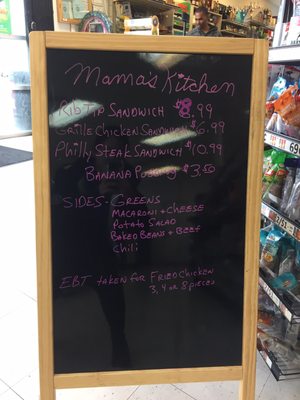 Mama's Kitchen
Rib Tip Sandwich $8.99
Grille Chicken Sandwich $6.99
Philly Steak Sandwich $10.99
Banana Pudding $3.50
Sides - Greens
Macaroni + Cheese
Potato Salad
Baked Beans + Beef
Chili
EBT taken for Fried Chicken
3, 4 or 8 pieces